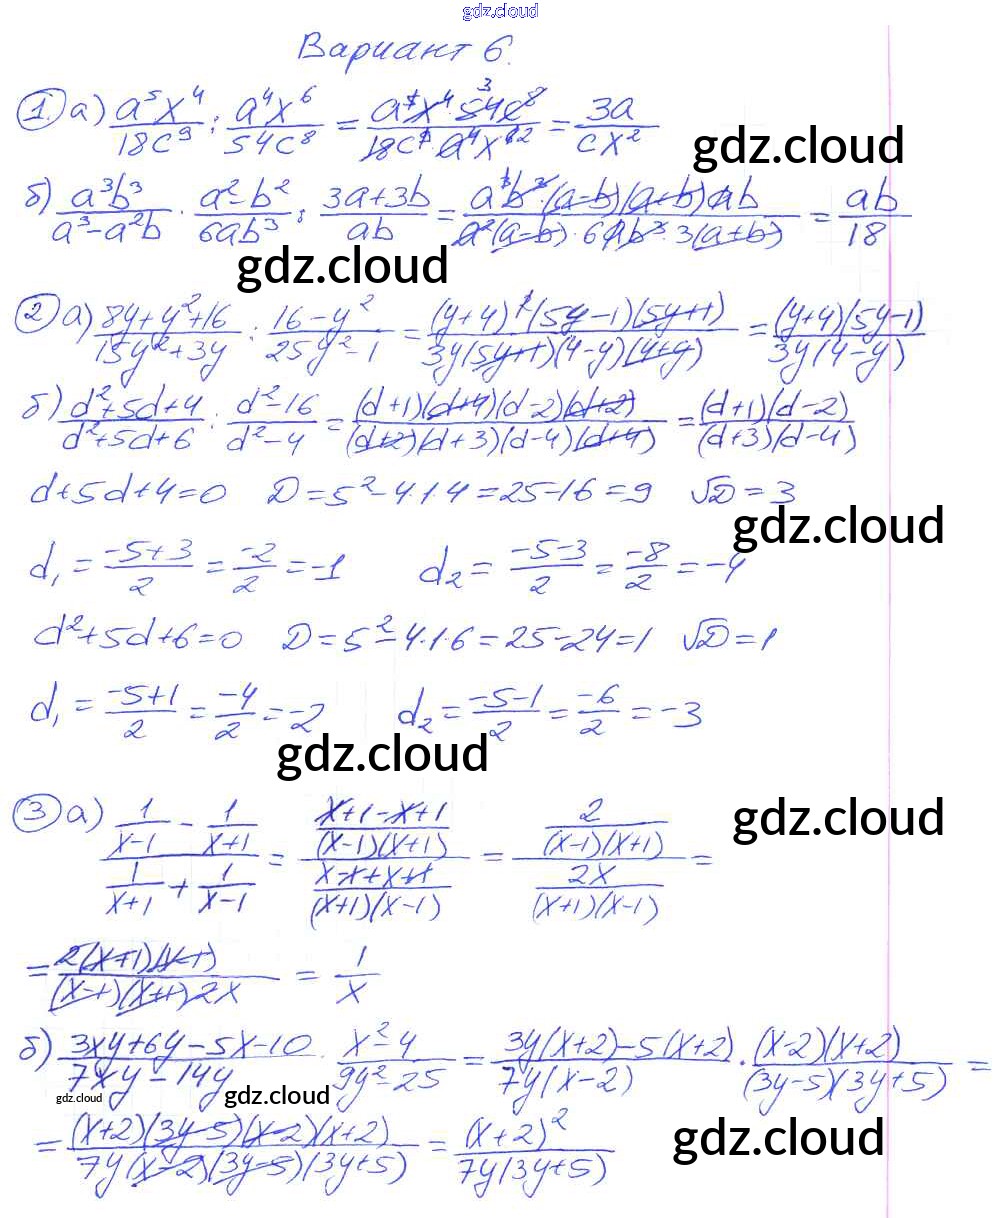 gdz.cloud
Вариант 6.
1. а) a⁵x⁴/18c⁹ : a⁴x⁶/54c⁸ = a⁵x⁴·54c⁸/18c⁹a⁴x⁶ = 3a/cx²
gdz.cloud
б) a³b³/a³−a²b · a²−b²/6ab³ : 3a+3b/ab = a³b³·(a−b)(a+b)ab/a²(a−b)·6ab³·3(a+b) = ab/18
gdz.cloud
2 а) 8y+y²+16/15y²+3y : 16−y²/25y²−1 = (y+4)²(5y−1)(5y+1)/3y(5y+1)(4−y)(4+y) = (y+4)(5y−1)/3y(4−y)
б) d²+5d+4/d²+5d+6 : d²−16/d²−4 = (d+1)(d+4)(d−2)(d+2)/(d+2)(d+3)(d−4)(d+4) = (d+1)(d−2)/(d+3)(d−4)
d+5d+4=0 D=5²−4·1·4=25−16=9 √D=3
gdz.cloud
d₁ = −5+3/2 = −2/2 = −1 d₂ = −5−3/2 = −8/2 = −4
d²+5d+6=0 D=5²−4·1·6=25−24=1 √D=1
d₁ = −5+1/2 = −4/2 = −2 d₂ = −5−1/2 = −6/2 = −3
gdz.cloud
3 а) (1/x−1 − 1/x+1)/(1/x+1 + 1/x−1) = (x+1−x+1/(x−1)(x+1))/(x−1+x+1/(x+1)(x−1)) = (2/(x−1)(x+1))/(2x/(x+1)(x−1)) =
gdz.cloud
= 2(x+1)(x−1)/(x−1)(x+1)2x = 1/x
б) 3xy+6y−5x−10/7xy−14y · x²−4/9y²−25 = 3y(x+2)−5(x+2)/7y(x−2) · (x−2)(x+2)/(3y−5)(3y+5) =
gdz.cloud
gdz.cloud
= (x+2)(3y−5)(x−2)(x+2)/7y(x−2)(3y−5)(3y+5) = (x+2)²/7y(3y+5)
gdz.cloud